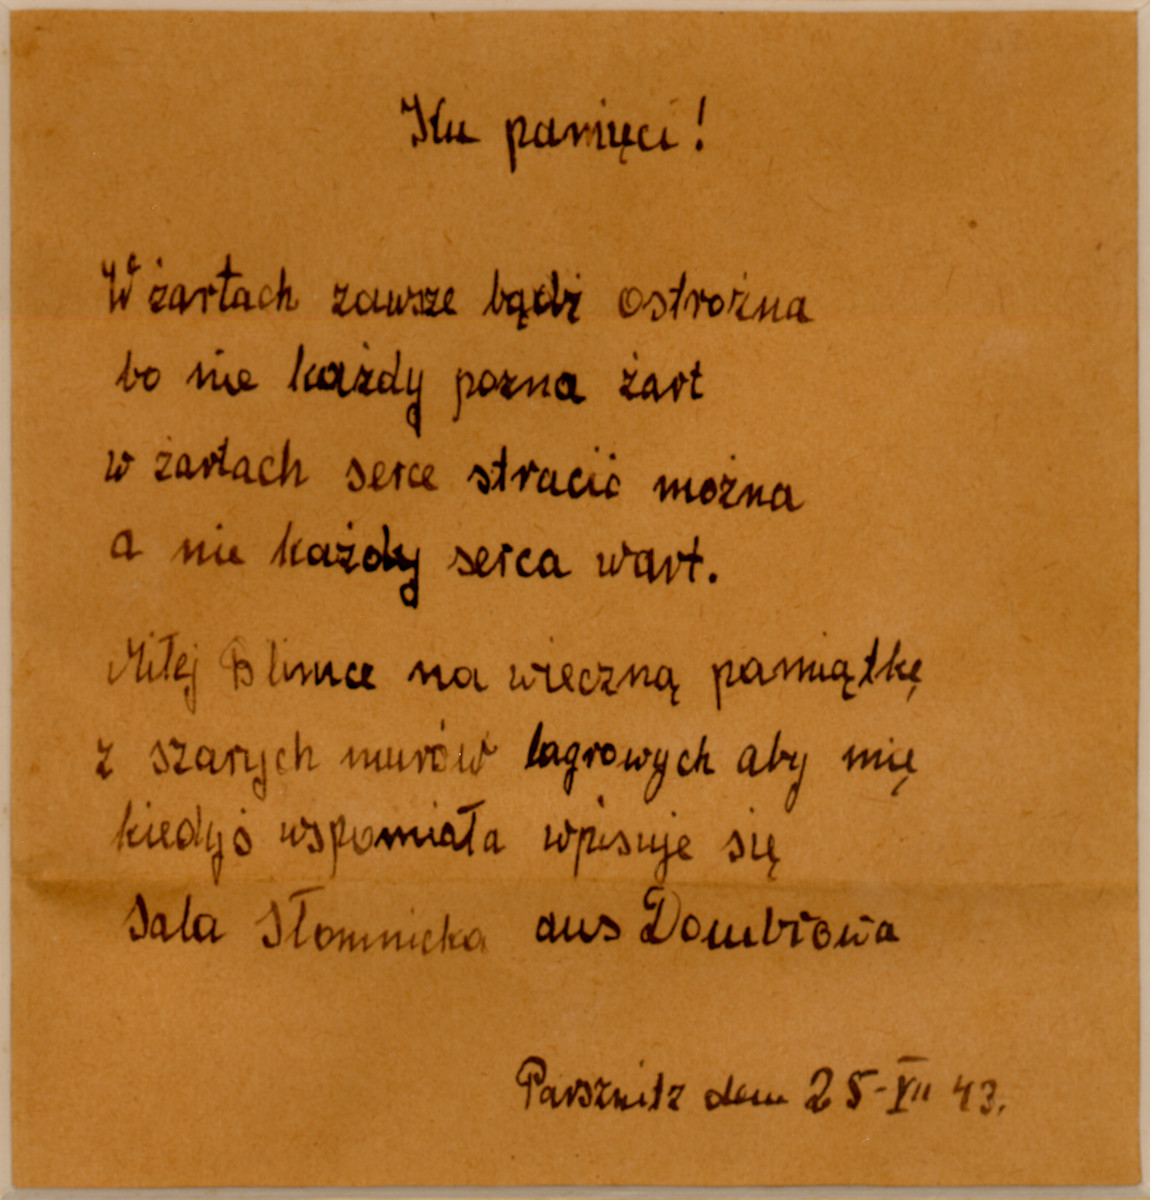 Ku pamięci!
W żartach zawsze bądź ostrożna
bo nie każdy pozna żart
w żartach serce stracić można
a nie każdy serca wart.
Miłej Blimce na wieczną pamiątkę
z szarych murów lagrowych aby mię
kiedyś wspomiała wpisuje się
Sala Słomnicka aus Dombrowa
Parsznitz dem 25-XII 43.